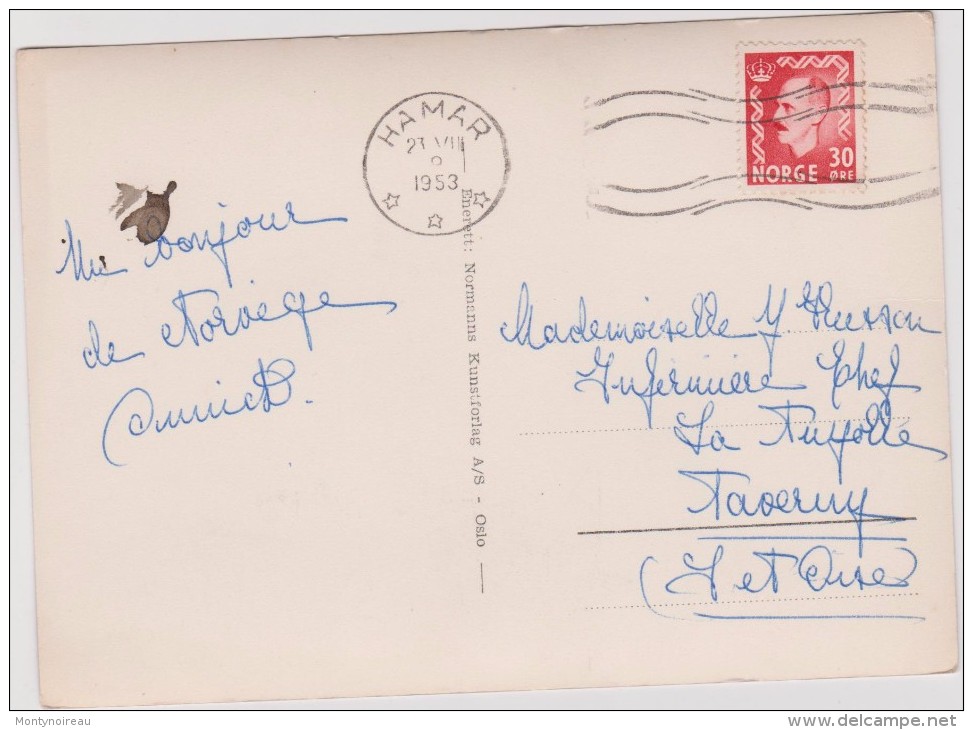 HAMAR
23 VII
8
1953
30
NORGE ØRE
Un bonjour
de Norvège
Annick.
Enerett: Normanns Kunstforlag A/S - Oslo
Mademoiselle Y Husson
Infirmière Chef
La Tuyolle
Taverny
(S et Oise)
Montynoireau
delcampe.net